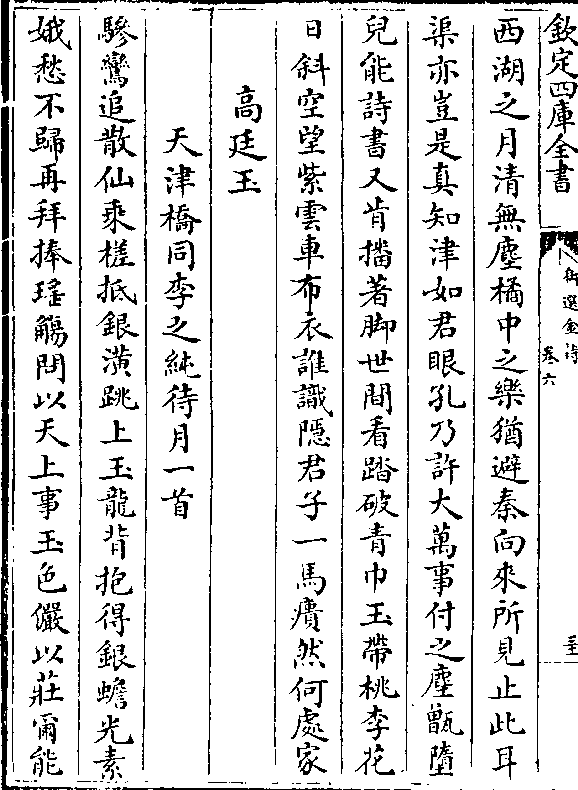 欽定四庫全書
新選金詩
卷六
至
西湖之月清無塵橘中之樂猶避秦向來所見止此耳
渠亦豈是真知津如君眼孔乃許大萬事付之塵甑墮
兒能詩書又肯播著脚世間看踏破青巾玉帶桃李花
日斜空望紫雲車布衣誰識隱君子一馬癀然何處家
高廷玉
天津橋同李之純待月一首
驂鸞追散仙乘槎抵銀潢跳上玉龍背抱得銀蟾光素
娥愁不歸再拜捧瑤觴問以天上事玉色儼以莊爾能